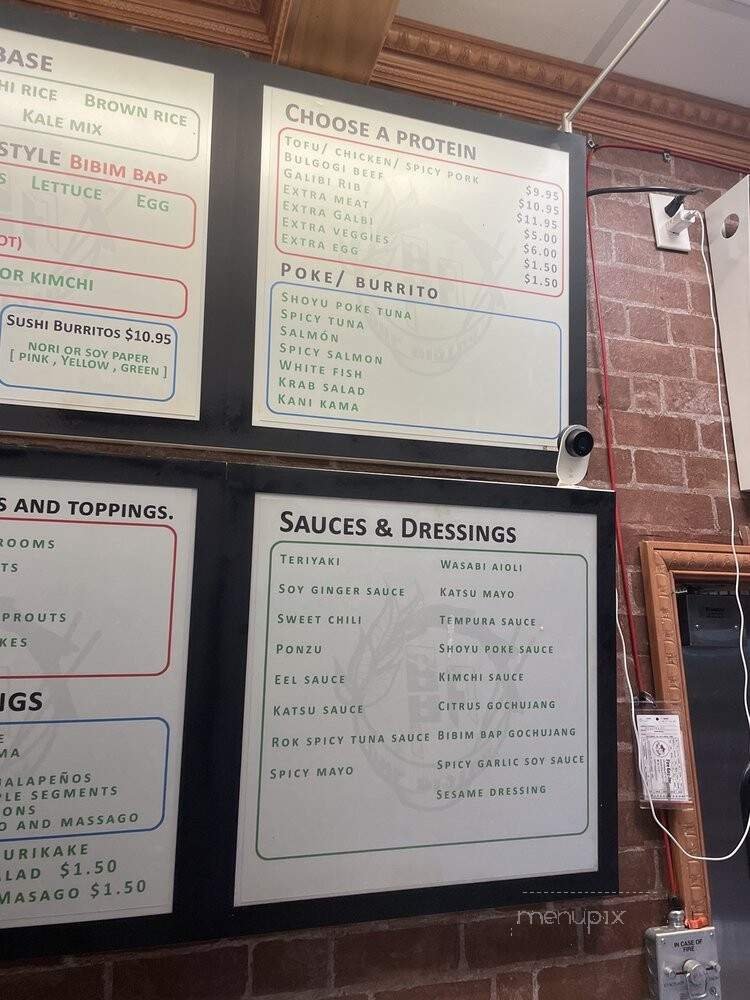 BASE
RICE BROWN RICE
KALE MIX
STYLE BIBIM BAP
LETTUCE EGG
OR KIMCHI
SUSHI BURRITOS $10.95
NORI OR SOY PAPER
[ PINK , YELLOW , GREEN ]
CHOOSE A PROTEIN
TOFU/ CHICKEN/ SPICY PORK $9.95
BULGOGI BEEF $10.95
GALIBI RIB $11.95
EXTRA MEAT $5.00
EXTRA GALBI $6.00
EXTRA VEGGIES $1.50
EXTRA EGG $1.50
POKE/ BURRITO
SHOYU POKE TUNA
SPICY TUNA
SALMÓN
SPICY SALMON
WHITE FISH
KRAB SALAD
KANI KAMA
AND TOPPINGS.
ROOMS
SPROUTS
KES
NGS
JALAPEÑOS
PLE SEGMENTS
IONS
O AND MASSAGO
URIKAKE
ALAD $1.50
MASAGO $1.50
SAUCES & DRESSINGS
TERIYAKI
SOY GINGER SAUCE
SWEET CHILI
PONZU
EEL SAUCE
KATSU SAUCE
ROK SPICY TUNA SAUCE
SPICY MAYO
WASABI AIOLI
KATSU MAYO
TEMPURA SAUCE
SHOYU POKE SAUCE
KIMCHI SAUCE
CITRUS GOCHUJANG
BIBIM BAP GOCHUJANG
SPICY GARLIC SOY SAUCE
SESAME DRESSING
menupix
IN CASE OF
FIRE